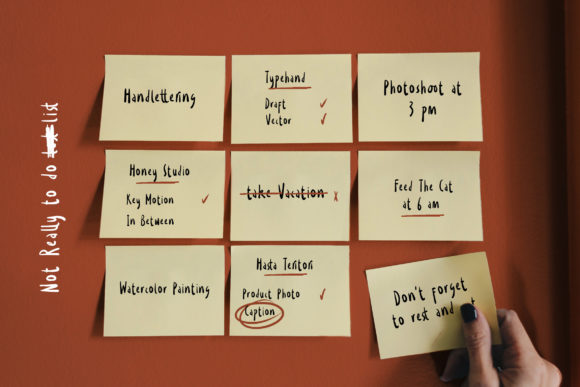 Not Really to do list
Handlettering
Typehand
Draft
Vector
Photoshoot at
3 pm
Honey Studio
Key Motion
In Between
take Vacation
Feed The Cat
at 6 am
Watercolor Painting
Hasta Teritori
Product Photo
Caption
Don't forget
to rest and